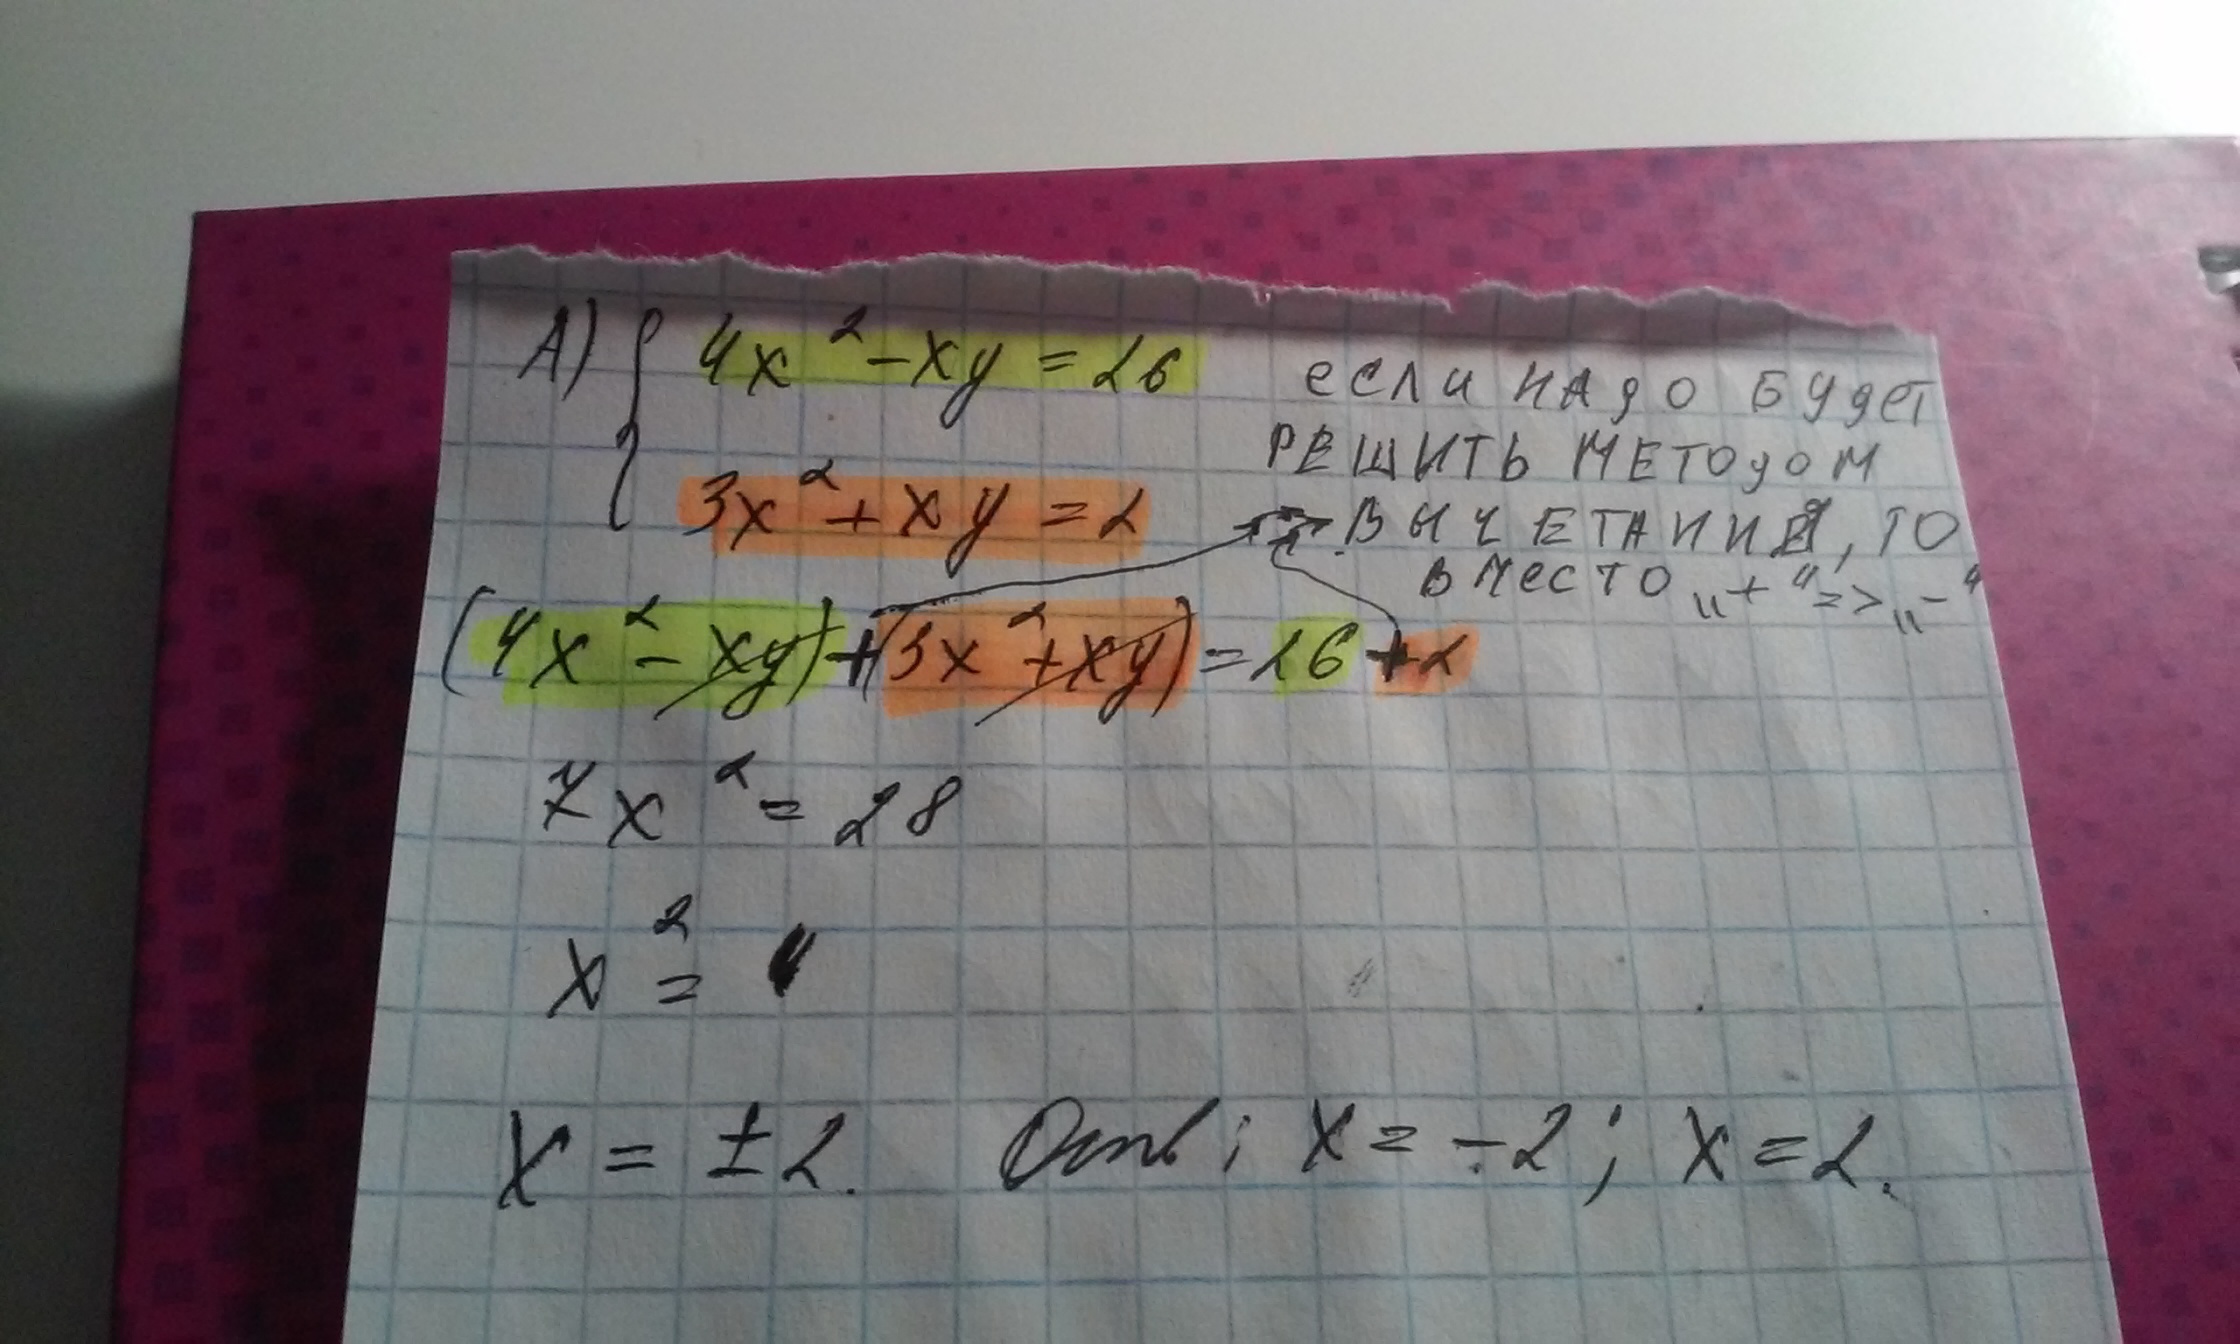 А) { 4x² - xy = 26
3x² + xy = 2
если надо будет
решить методом
вычетания, то
вместо „+“ => „-“
(4x² - xy) + (3x² + xy) = 26 + 2
7x² = 28
x² = 4
x = ±2. Отв: x = -2; x = 2.